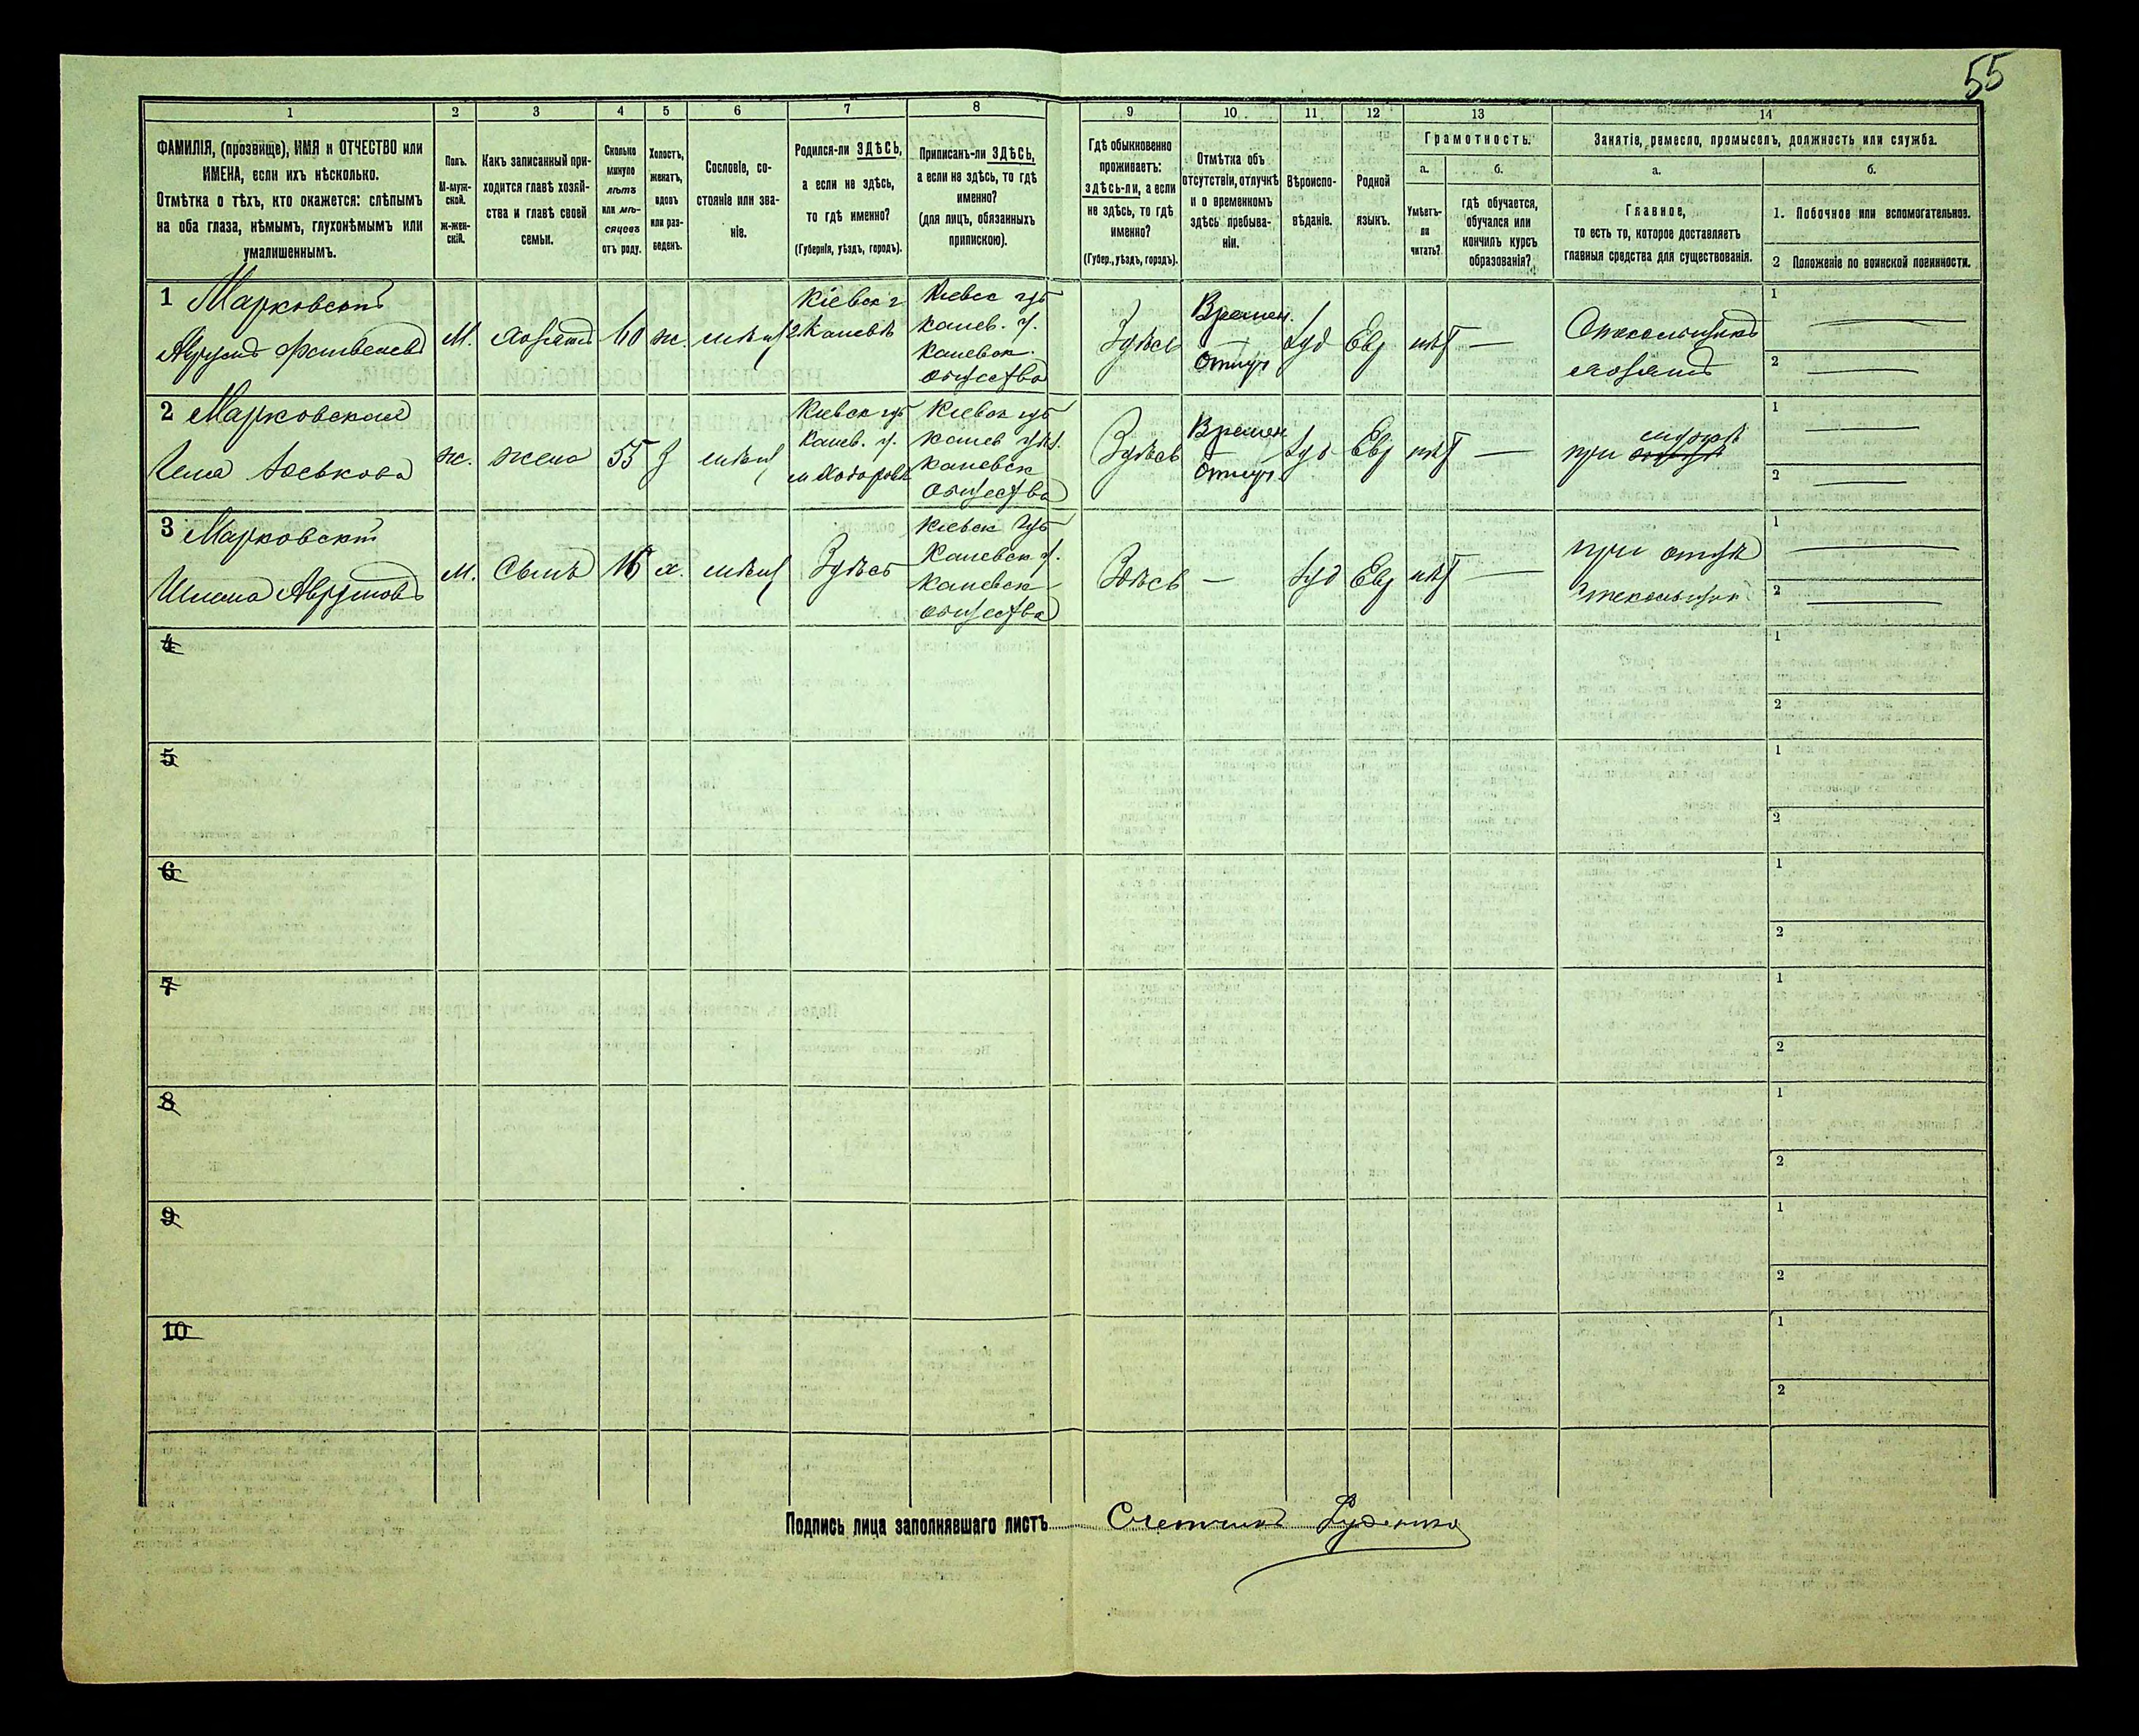 55
1
2
3
4
5
6
7
8
9
10
11
12
13
14
ФАМИЛІЯ, (прозвище), ИМЯ и ОТЧЕСТВО или
ИМЕНА, если ихъ нѣсколько.
Отмѣтка о тѣхъ, кто окажется: слѣпымъ
на оба глаза, нѣмымъ, глухонѣмымъ или
умалишеннымъ.
Полъ.
М-муж-
ской.
ж-жен-
скій.
Какъ записанный при-
ходится главѣ хозяй-
ства и главѣ своей
семьи.
Сколько
минуло
лѣтъ
или мѣ-
сяцевъ
отъ роду.
Холостъ,
женатъ,
вдовъ
или раз-
веденъ.
Сословіе, со-
стояніе или зва-
ніе.
Родился-ли ЗДѢСЬ,
а если не здѣсь,
то гдѣ именно?
(Губернія, уѣздъ, городъ).
Приписанъ-ли ЗДѢСЬ,
а если не здѣсь, то гдѣ
именно?
(для лицъ, обязанныхъ
припискою).
Гдѣ обыкновенно
проживаетъ:
здѣсь-ли, а если
не здѣсь, то гдѣ
именно?
(Губер., уѣздъ, городъ).
Отмѣтка объ
отсутствіи, отлучкѣ
и о временномъ
здѣсь пребыва-
ніи.
Вѣроиспо-
вѣданіе.
Родной
языкъ.
Грамотность.
а.
Умѣетъ-
ли
читать?
б.
гдѣ обучается,
обучался или
кончилъ курсъ
образованія?
Занятіе, ремесло, промыселъ, должность или служба.
а.
Главное,
то есть то, которое доставляетъ
главныя средства для существованія.
б.
1. Побочное или вспомогательное.
2 Положеніе по воинской повинности.
1 Марковскій
М.
хозяинъ
60
ж.
мѣщ
Кіевск г
Каневѣ
Кіевс губ
Канев. у.
Каневск.
общества
Здѣсь
Времен.
Отлуч
Іуд
Евр
нѣт
—
Стекольщикъ
хозяинъ
1
2
2 Марковская
Іоськова
ж.
жена
55
з
мѣщ
Кіевск губ
Канев. у.
м Ходоровѣ
Кіевск губ
Канев уѣз.
Каневск
общества
Здѣсь
Времен
Отлуч.
Іуд
Евр
нѣт
—
при мужѣ
1
2
3 Марковскій
Аврумовъ
М.
Сынъ
16
х.
мѣщ
Здѣсь
Кіевск Губ
Каневск у.
Каневск
общества
Здѣсь
—
Іуд
Евр
нѣт
—
при отцѣ
Стекольщик
1
2
4
1
2
5
1
2
6
1
2
7
1
2
8
1
2
9
1
2
10
1
2
Подпись лица заполнявшаго листъ Счетчикъ